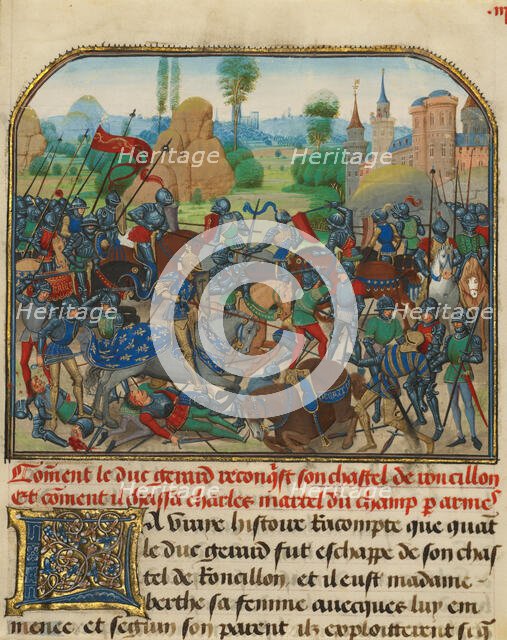 Heritage Heritage
Heritage Heritage
C
Heritage Heritage
Heritage Heritage
Coment le duc gerard reconqist son chastel de roncillon
Et coment il chassa charles martel du champ p armes
La vraye histoire Racompte que quāt
le duc gerard fut eschappe de son chas
tel de Roncillon, et il eust madame
berthe sa femme avecques luy em
menee, et seguin son parent ilz exploitterent si q̃